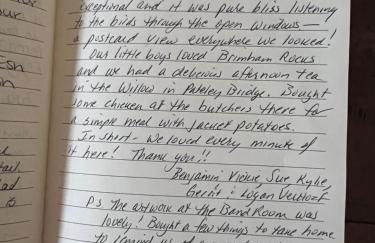 our
ESH
n
exceptional and it was pure bliss listening
to the birds through the open windows —
a postcard view everywhere we looked!
Our little boys loved Brimham Rocks
and we had a delicious afternoon tea
in the Willow in Pateley Bridge. Bought
some chicken at the butchers there for
a simple meal with jacket potatoes.
In short - we loved every minute of
it here! Thank you!!
Benjamin, Vickie, Sue, Kylie,
Gerrit & Logan
P.S. The artwork at the Band Room was
lovely! Bought a few things to take home
to remind us of